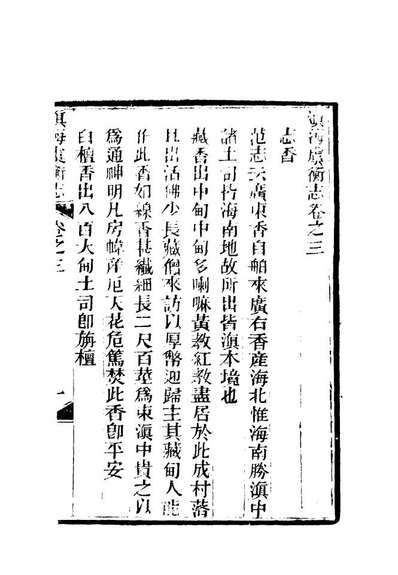 滇海虞衡志卷之三
志香
范志云廣東香自舶來廣右香産海北惟海南勝滇中
諸土司竹海南地故所出皆滇本境也
藏香出中甸中甸多喇嘛黃教紅教盡居於此成村落
且出活佛少長藏僧來訪以厚幣迎歸主其藏甸人能
作此香如線香甚纖細長二尺百莖爲束滇中貴之以
爲通神明凡房幃産厄天花危篤焚此香卽平安
白檀香出八百大甸土司卽旃檀
滇海虞衡志
卷之三
一